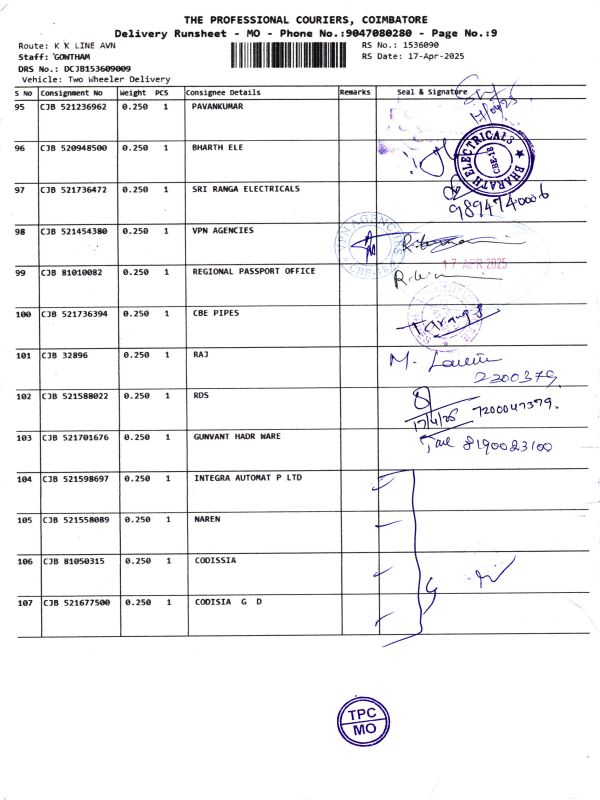 THE PROFESSIONAL COURIERS, COIMBATORE
Delivery Runsheet - MO - Phone No.:9047080280 - Page No.:9
Route: K K LINE AVN
RS No.: 1536090
Staff: GOWTHAM
RS Date: 17-Apr-2025
DRS No.: DCJB153609009
Vehicle: Two Wheeler Delivery
S NO Consignment No Weight PCS Consignee Details Remarks Seal & Signature
95 CJB 521236962 0.250 1 PAVANKUMAR
17/04/25
96 CJB 520948500 0.250 1 BHARTH ELE
BHARATH ELECTRICALS ★ CBE-18 ★
97 CJB 521736472 0.250 1 SRI RANGA ELECTRICALS
9894740006
98 CJB 521454380 0.250 1 VPN AGENCIES
VPN AGENC
17 APR 2025
99 CJB 81010082 0.250 1 REGIONAL PASSPORT OFFICE
100 CJB 521736394 0.250 1 CBE PIPES
101 CJB 32896 0.250 1 RAJ
M.
2200379
102 CJB 521588022 0.250 1 RDS
17/4/25 7200047379.
103 CJB 521701676 0.250 1 GUNVANT HADR WARE
8190023100
104 CJB 521598697 0.250 1 INTEGRA AUTOMAT P LTD
105 CJB 521558089 0.250 1 NAREN
106 CJB 81050315 0.250 1 CODISSIA
107 CJB 521677500 0.250 1 CODISIA G D
TPC
MO